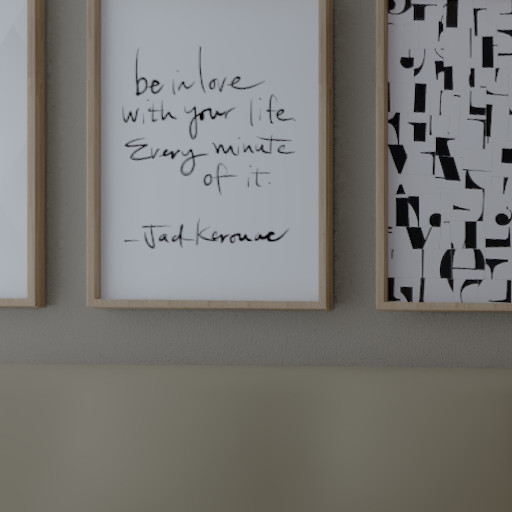 be in love
with your life
Every minute
of it.
- Jack Kerouac